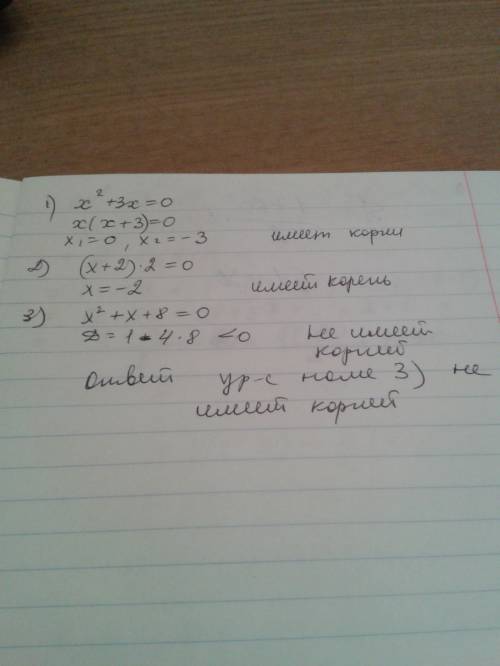 1) x² + 3x = 0
x(x+3)=0
x₁=0, x₂=-3 имеет корни
2) (x+2)·2 = 0
x = -2 имеет корень
3) x² + x + 8 = 0
D = 1 - 4·8 < 0 не имеет
корней
ответ ур-е номе 3) не
имеет корней